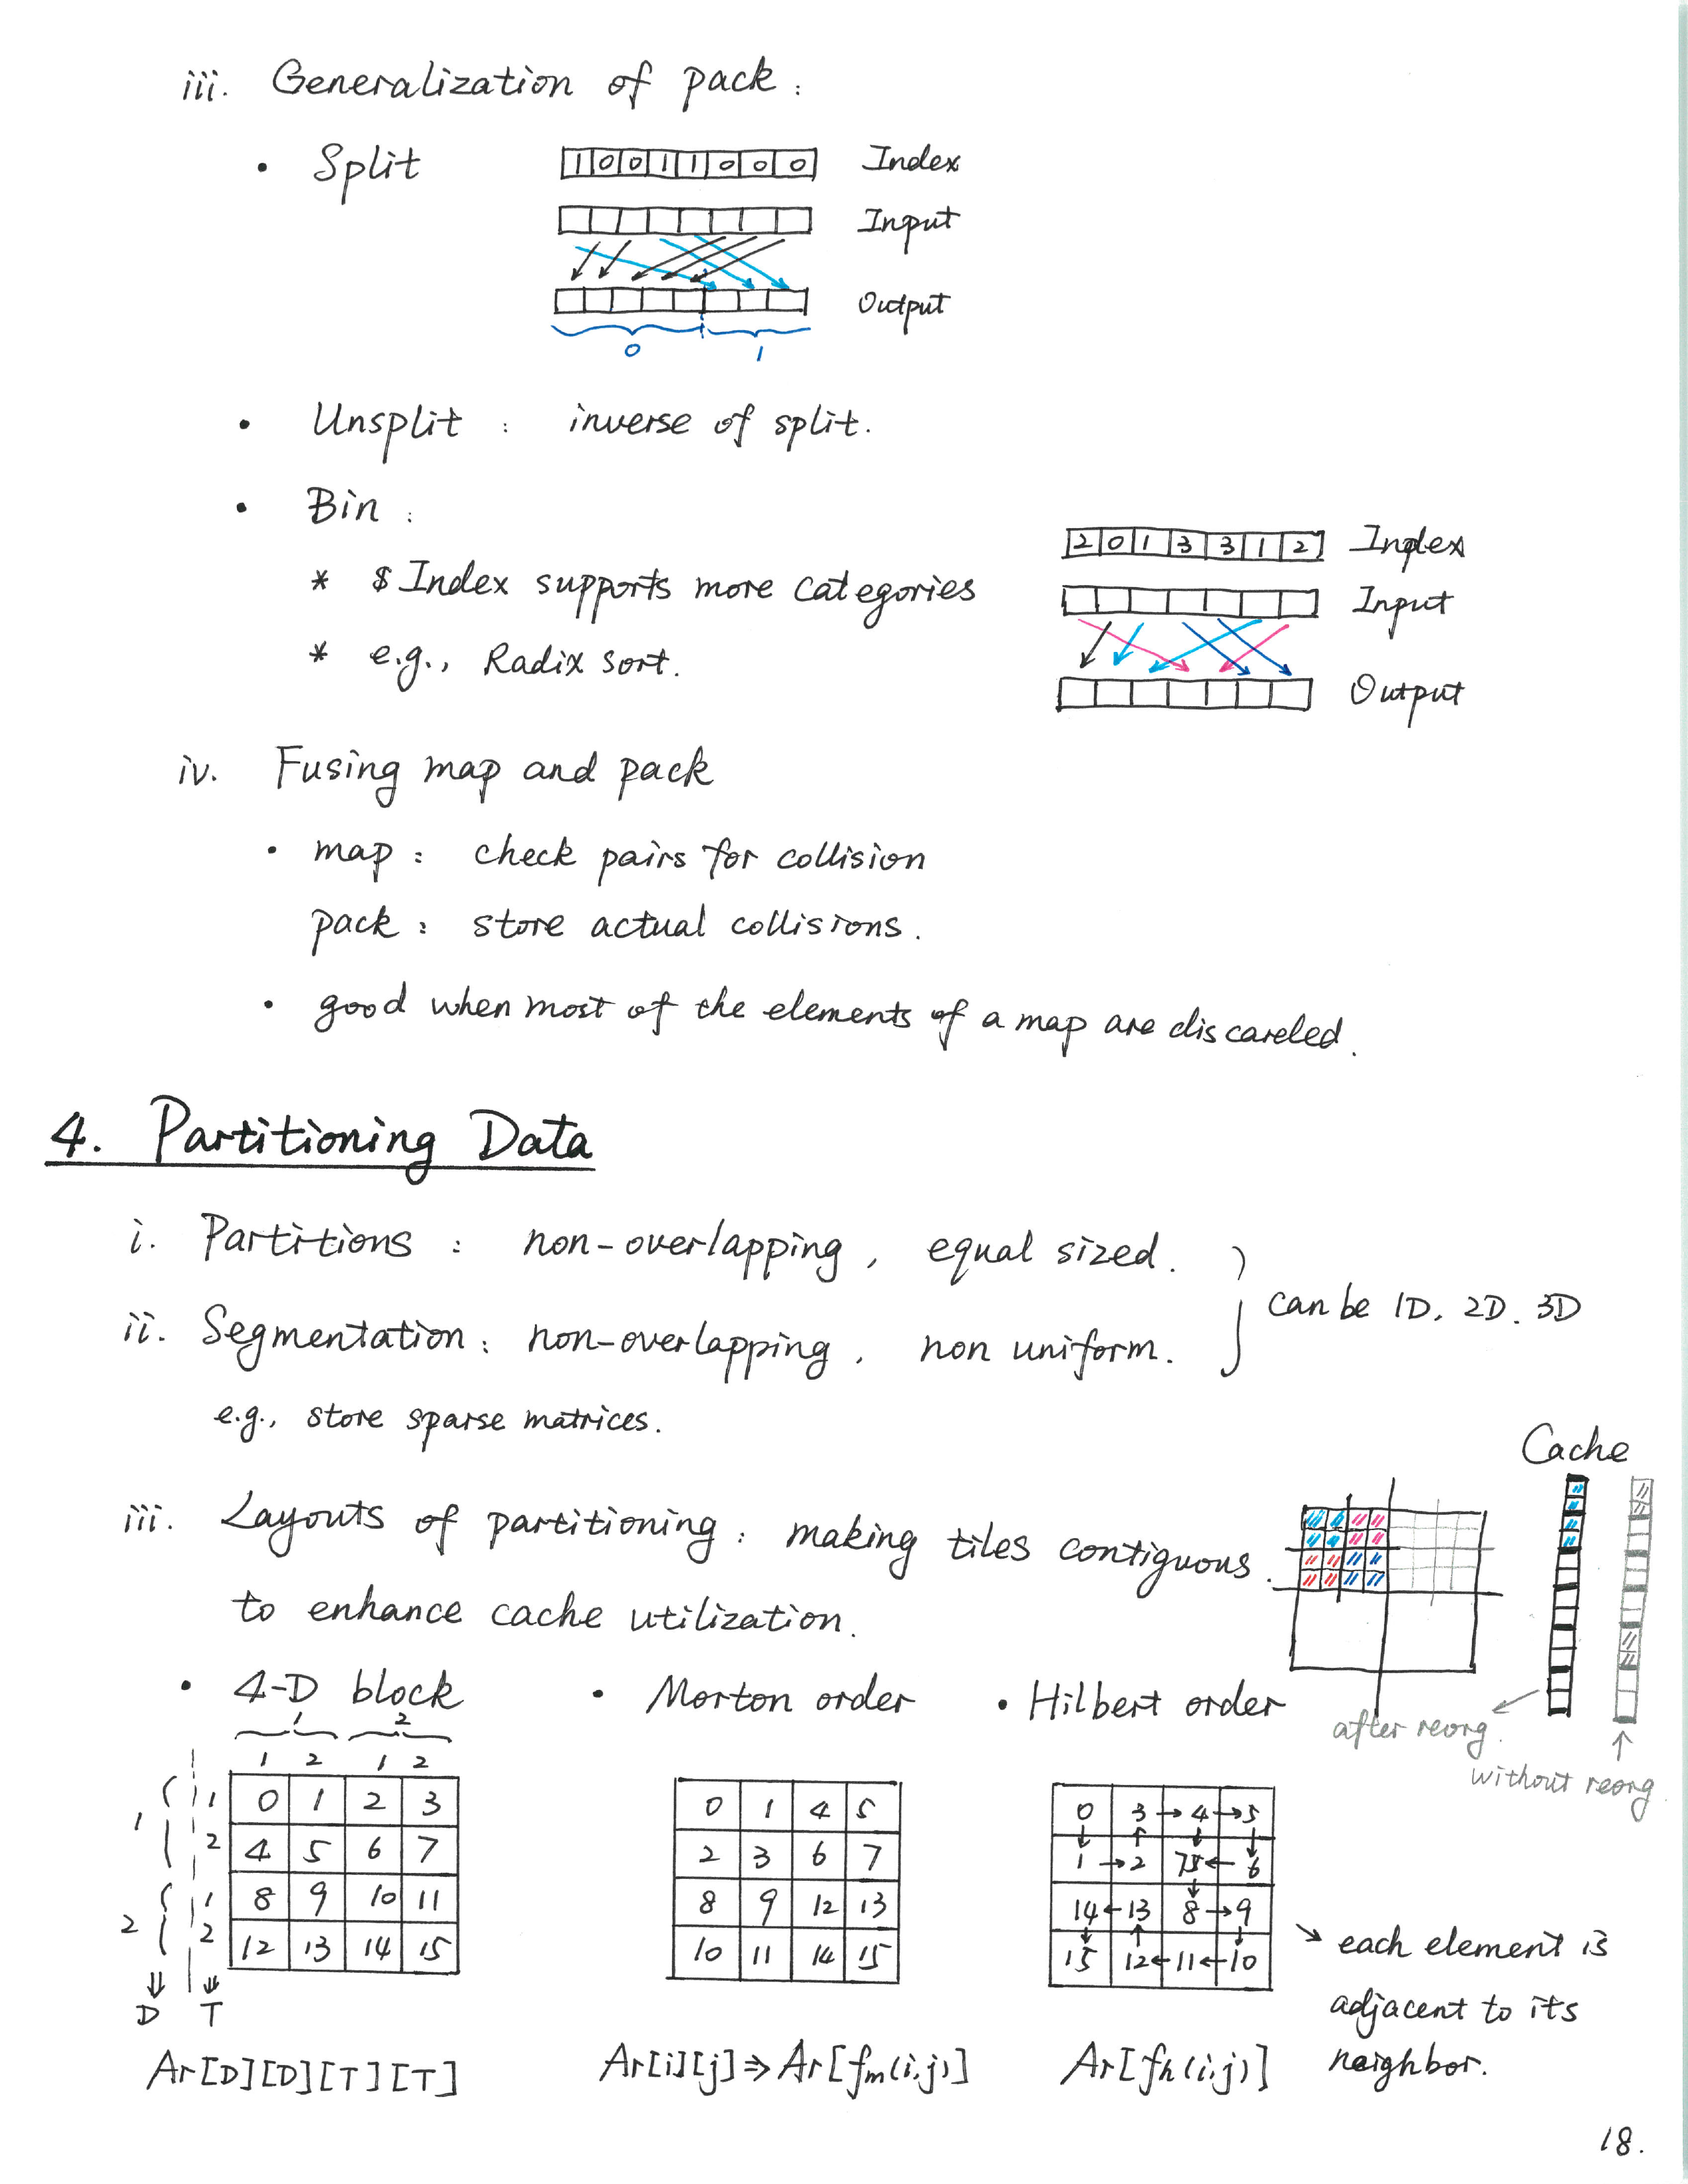 iii. Generalization of pack :
• Split
1 0 0 1 1 0 0 0 Index
Input
Output
0 1
• Unsplit : inverse of split.
• Bin :
2 0 1 3 3 1 2 Index
* $ Index supports more categories
Input
* e.g., Radix sort.
Output
iv. Fusing map and pack
• map : check pairs for collision
pack : store actual collisions.
• good when most of the elements of a map are discareled.
4. Partitioning Data
i. Partitions : non-overlapping, equal sized.
can be 1D, 2D. 3D
ii. Segmentation : non-overlapping, non uniform.
e.g., store sparse matrices.
Cache
iii. Layouts of partitioning : making tiles contiguous.
to enhance cache utilization.
after reorg.
without reorg
• 4-D block
1 2
1 2 1 2
1 1 0 1 2 3
2 4 5 6 7
2 1 8 9 10 11
2 12 13 14 15
D T
Ar[D][D][T][T]
• Morton order
0 1 4 5
2 3 6 7
8 9 12 13
10 11 14 15
Ar[i][j] ⇒ Ar[fm(i,j)]
• Hilbert order
0 3 → 4 → 5
1 → 2 7 ← 6
14 ← 13 8 → 9
15 12 ← 11 ← 10
Ar[fh(i,j)]
↘ each element is
adjacent to its
neighbor.
18.